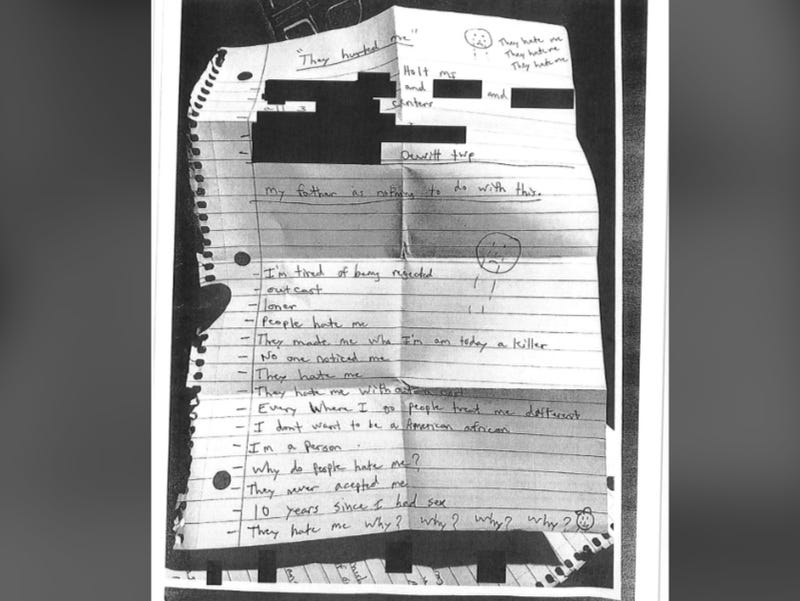 "They hurted me"
They hate me
They hate me
They hate me
Holt mi
and and
all 3 centers
Dewitt twp
my father as nothing to do with this.
- I'm tired of being rejected
- outcast
- loner
- People hate me
- They made me who I'm am today a killer
- No one noticed me
- They hate me
- They hate me without a
- Every Where I go people treat me different
- I dont want to be a American african
- I'm a person.
- Why do people hate me?
- They never acepted me
- 10 years since I had sex
- They hate me why? why? why? why?